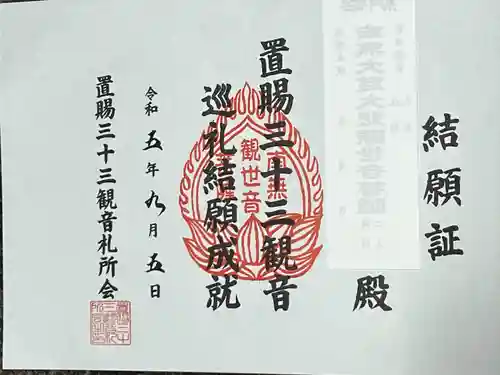 結願証
殿
置賜三十三観音
巡礼結願成就
南無
観世音
菩薩
令和五年九月五日
置賜三十三観音札所会